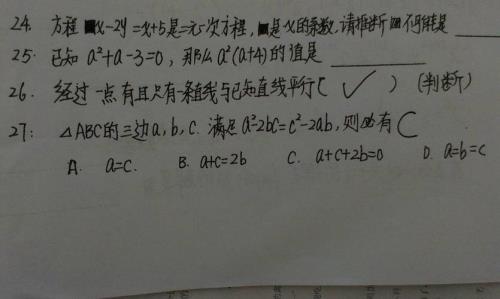 24. 方程■x-2y=x+5是二元一次方程,■是x的系数,请推断■不可能是____
25. 已知a²+a-3=0,那么a²(a+4)的值是____
26. 经过一点有且只有一条直线与已知直线平行( ✓ ) (判断)
27: △ABC的三边a,b,c.满足a²-2bc=c²-2ab,则必有C
A. a=c. B. a+c=2b C. a+c+2b=0 D. a=b=c